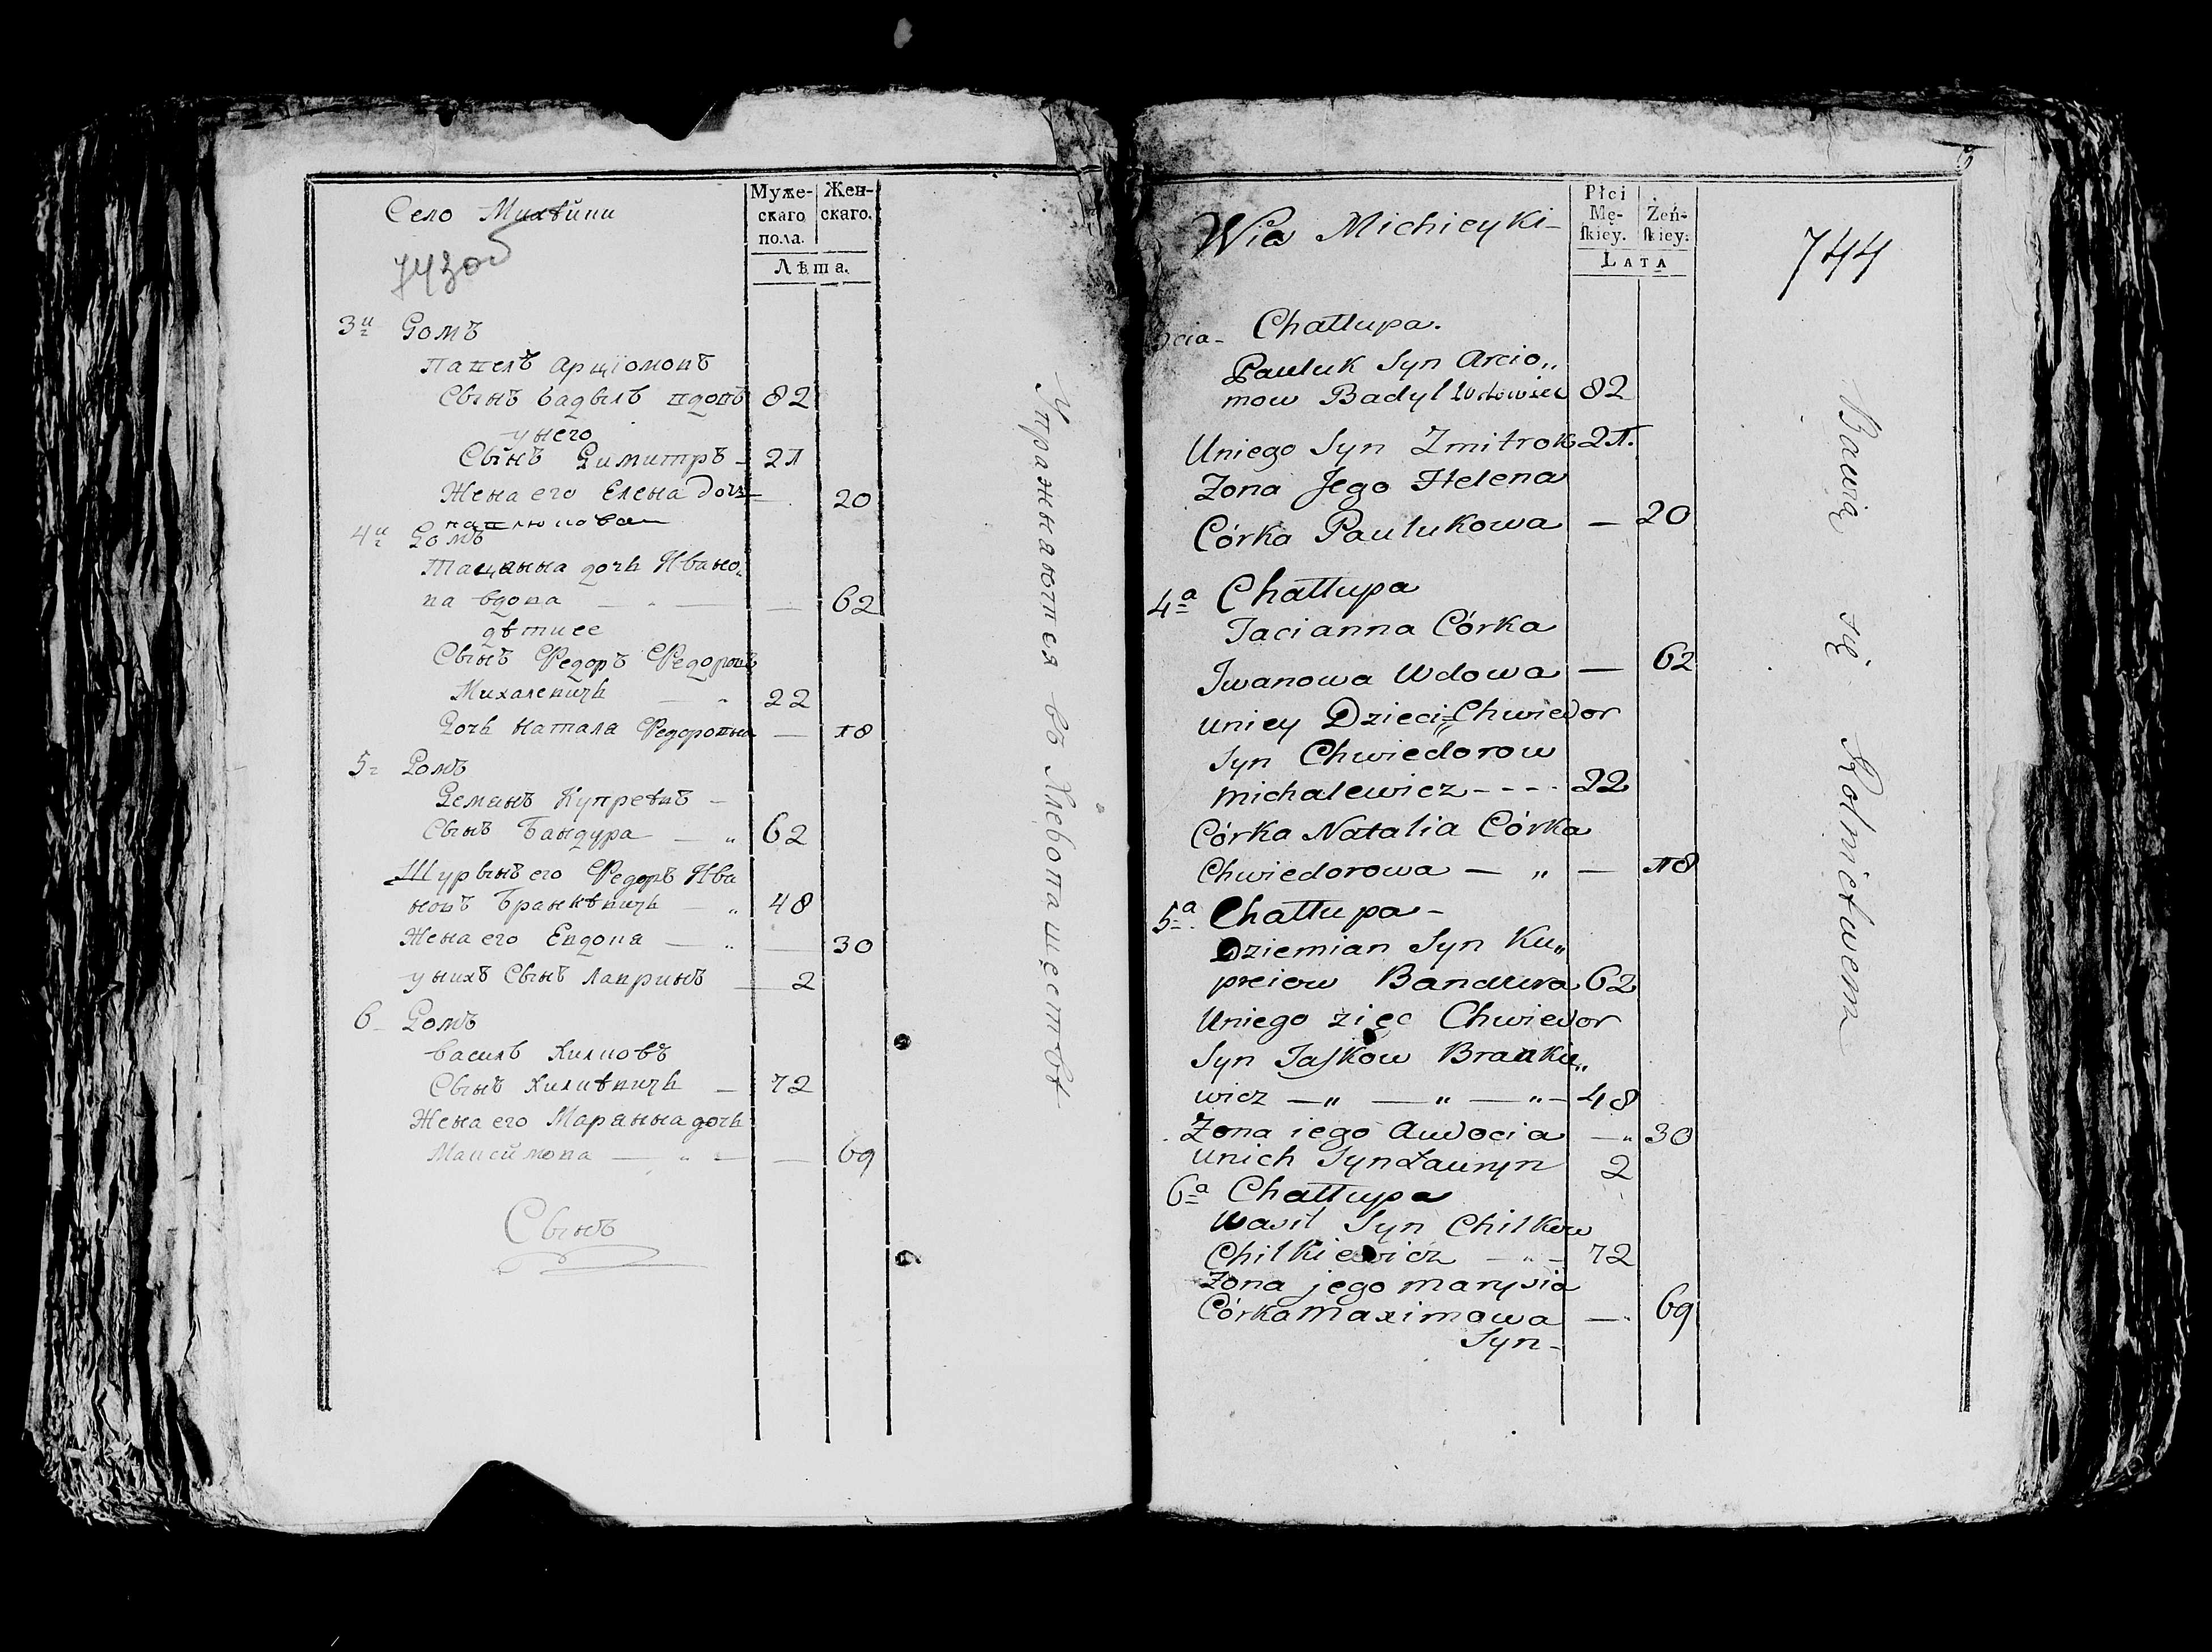 Село Михѣйки
743об
Муже-
скаго
пола.
Жен-
скаго.
Лѣта.
3й Домъ
Павелъ Арціомовъ
Сынъ Бадылъ вдовъ 82
у него
Сынъ Димитръ 21
Жена его Елена дочь 20
павлюкова
4й Домъ
Тацяна дочь Ивано„
ва вдова — 62
дѣти ее
Сынъ Федоръ Федоровъ
Михалевичь 22
Дочь Натала Федоровна — 18
5 Домъ
Деманъ Купреевъ
Сынъ Бандура 62
Шурынъ его Федоръ Ива
новъ Бранкѣвичь 48
Жена его Евдокя — 30
у нихъ Сынъ Лавринъ 2
6 Домъ
Василь Хилковъ
Сынъ Хилкѣвичь — 72
Жена его Марянна дочь
Максимова — 69
Сынъ
Упражняются въ Хлебопашествѣ
Wieś Michieyki
Płci
Mę-
skiey.
Żeń-
skiey.
LATA
744
3cia Chałupa.
Pauluk Syn Arcio„
mow Badyl Wdowiec 82
U niego Syn Zmitrok 21.
Zona Jego Helena
Córka Paulukowa — 20
4a Chałłupa
Tacianna Córka
Iwanowa Wdowa — 62
u niey Dzieci Chwiedor
Syn Chwiedorow
Michalewicz - - - 22
Córka Natalia Córka
Chwiedorowa — „ — 18
5a Chałłupa -
Dziemian Syn Ku„
preiew Bandura 62
U niego zięc Chwiedor
Syn Jaskow Brankie„
wicz — „ — „ — „ — 48
Zona iego Audocia — „ 30
u nich Syn Łauryn 2
6a Chałłupa
Wasil Syn Chilkow
Chilkiewicz — „ — 72
Zona jego Marysia
Córka Maximowa — 69
Syn -
Bawią się Rolnictwem